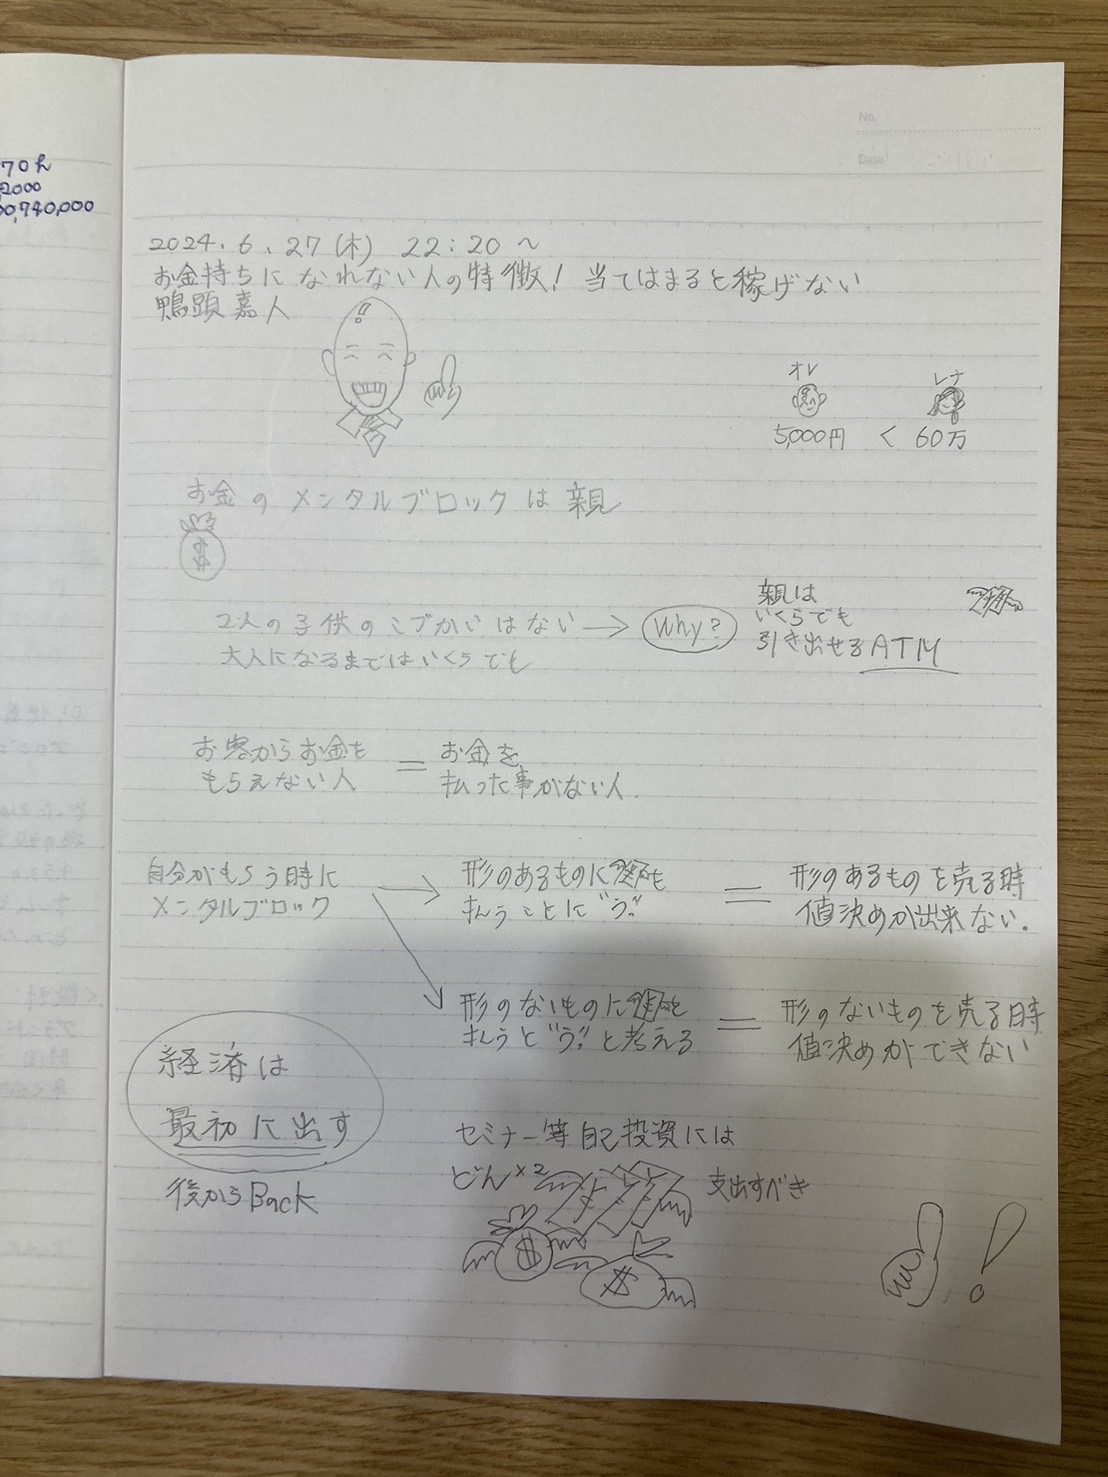 70h
2000
00,740,000
No.
Date
2024.6.27(木) 22:20〜
お金持ちになれない人の特徴！当てはまると稼げない
鴨頭嘉人
オレ
レナ
5,000円 < 60万
お金のメンタルブロックは親
$
2人の子供のこづかいはない → Why?
大人になるまではいくらでも
親は
いくらでも
引き出せるATM
お客からお金を
もらえない人
=
お金を
払った事がない人.
自分がもらう時に
メンタルブロック
形のあるものに
払うことに"う゛"
=
形のあるものを売る時
値決めが出来ない.
形のないものに
払うと"う゛"と考える
=
形のないものを売る時
値決めができない
経済は
最初に出す
後からBack
セミナー等自己投資には
どん×2 支出すべき
$
$
!